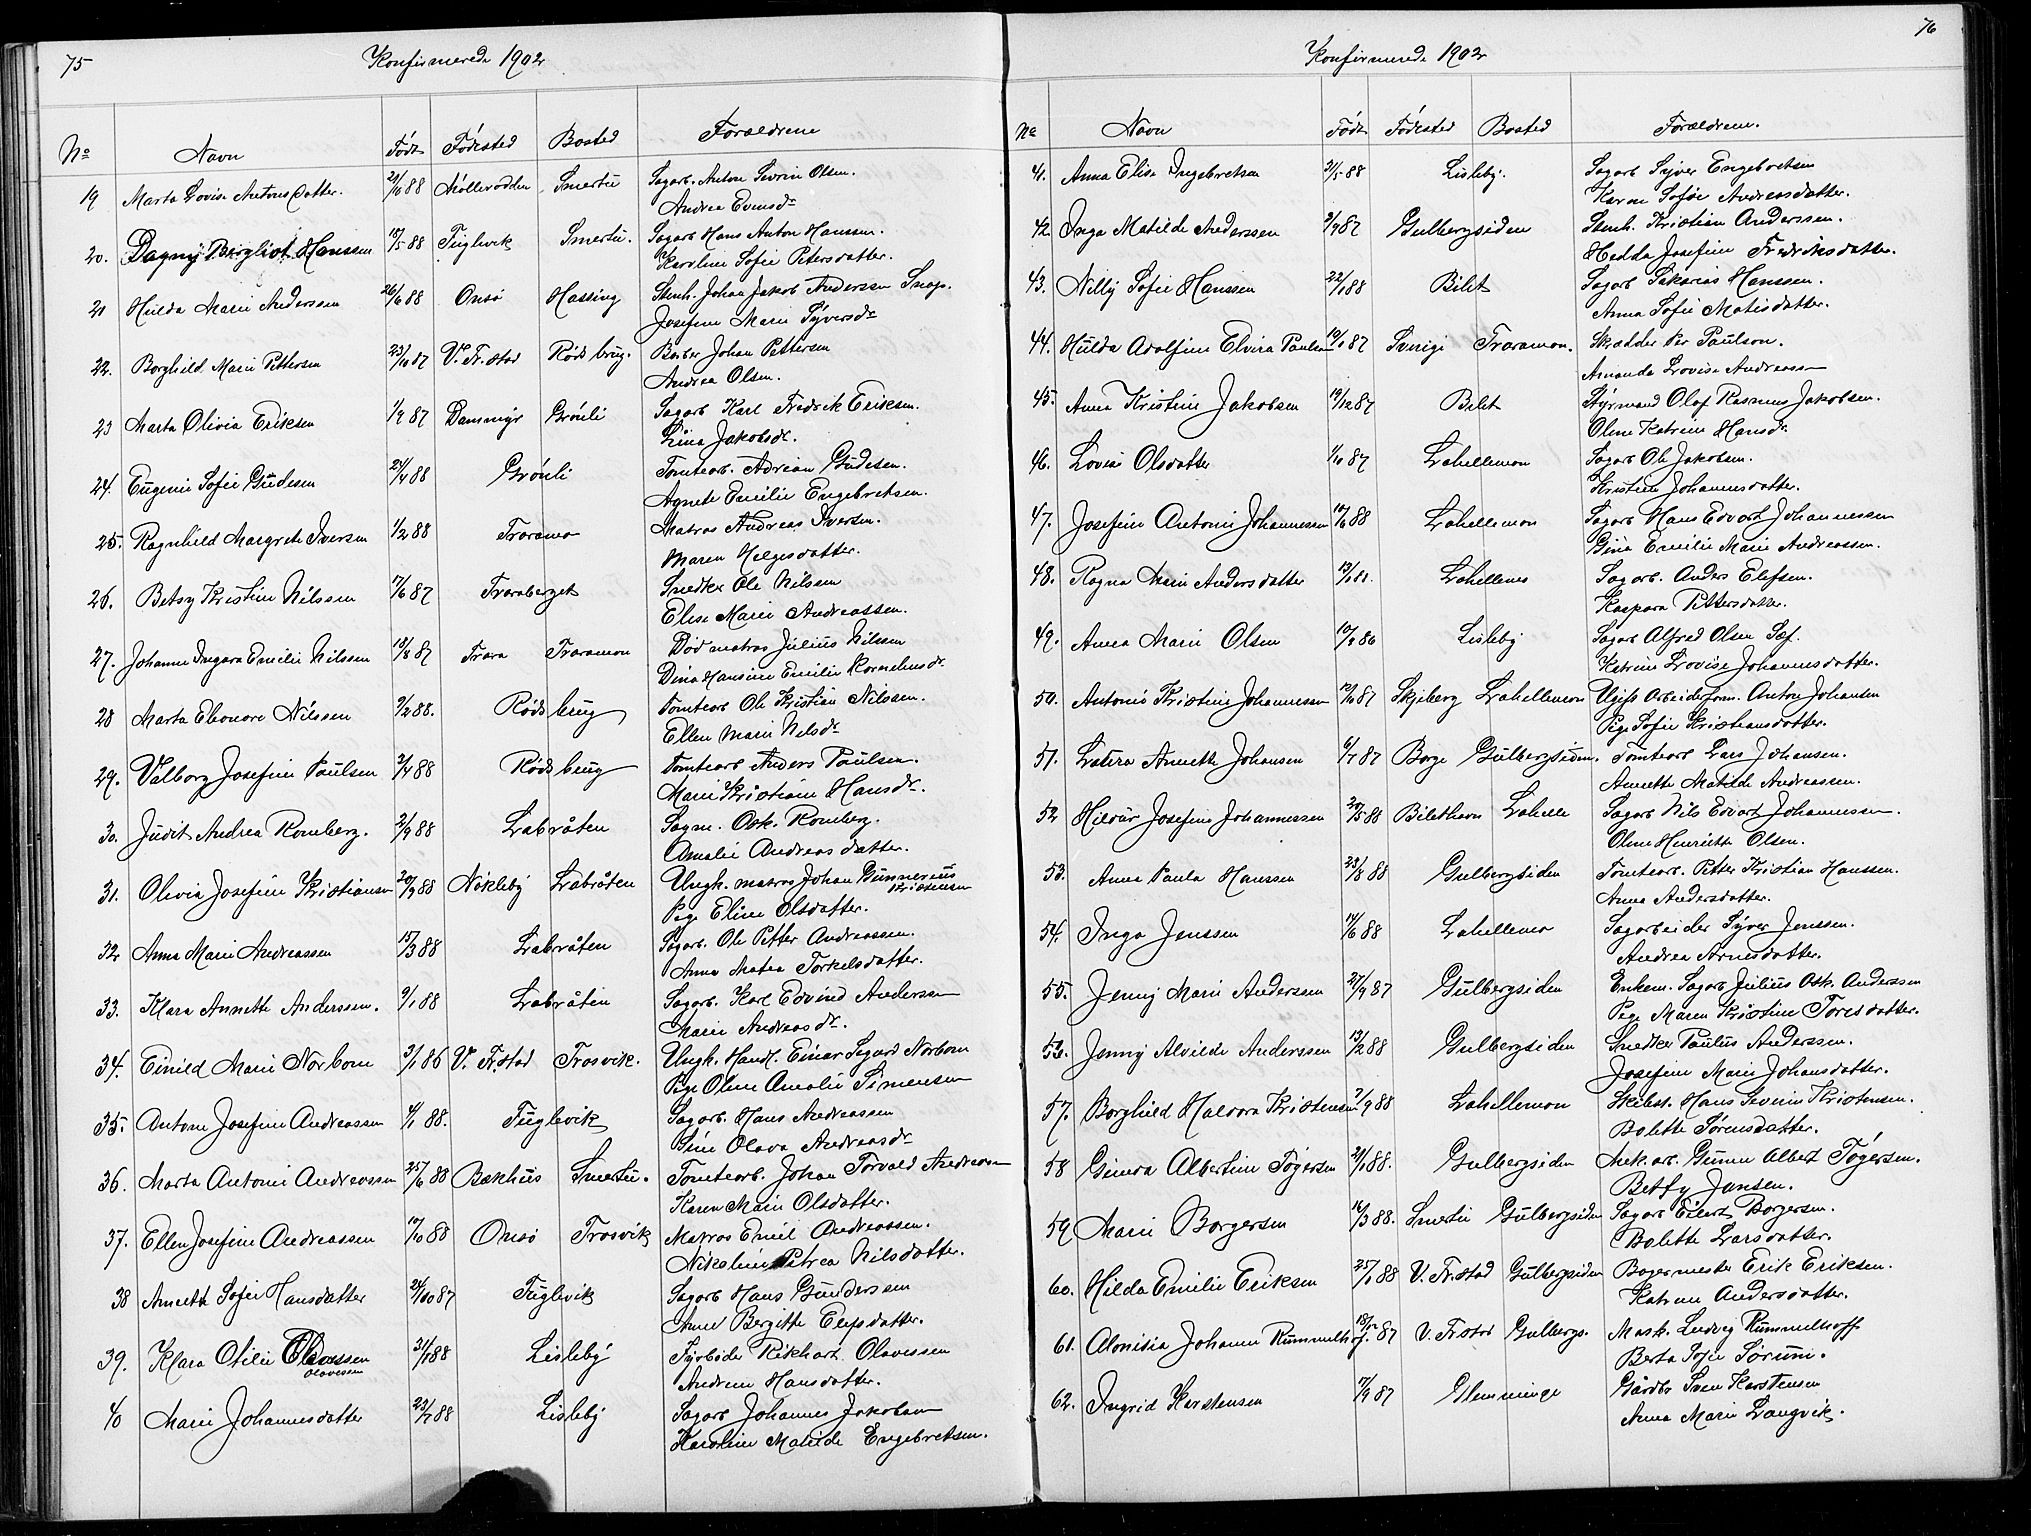 75
Konfirmerede 1902
No Navn Født Fødested Bosted Forældrene
19 Marta Lovise Antonsdatter. 88 Møllerodden Smertu Sagarb. Anton Sevrin Olsen.
Andrea Evensdr
20. Dagny Bergliot Hanssen 18/5 88 Fuglevik Smertu. Sagarb Hans Anton Hanssen.
Karoline Sofie Petersdatter.
21 Hulda Marie Anderssen 26/6 88 Onsø Hassing Stenh. Johan Jakob Anderssen
Josefine Marie Syversdr
22. Borghild Marie Pettersen 23/10 87 V. Fr.stad Røds brug. Barber Johan Pettersen
Andrea Olsen.
23 Marta Olivia Eriksen 1/9 87 Dammyr Grønli Sagarb Karl Fredrik Eriksen.
Lina Jakobsdr.
24. Eugenie Sofie Gudesen 21/4 88 Grønli Tomtearb. Adrian Gudesen.
Agnete Emilie Engebretsen.
25. Ragnhild Margrete Iversen 1/2 88 Traramo Matros Andreas Iversen.
Maren Helgesdatter.
26. Betsy Kristine Nilssen 17/6 87 Traraberget Snedker Ole Nilssen
Elise Marie Andreassen.
27. Johanne Ingara Emilie Nilssen 18/8 87 Trara Traramon Død matros Julius Nilssen
Dina Hansine Emilie Korneliusdr.
28 Marta Eleonore Nilssen 9/2 88. Røds brug Tomtearb Ole Kristian Nilssen.
Ellen Marie Nilsdr
29. Valborg Josefine Paulsen 3/4 88 Røds brug Tomtearb Anders Paulsen.
Marie Kristiane Hansdr.
30. Judit Andrea Romberg. 2/9 88 Labråten Sagm. Osk. Romberg.
Amalie Andreasdatter.
31. Olivia Josefine Kristiansen 20/2 88 Nøkleby Labråten Ungk. matros Johan Gunnerius
Kristensen
Pige Eline Olsdatter.
32 Anna Marie Andreassen 15/3 88 Labråten Sagarb. Ole Petter Andreassen.
Anna Matea Torkelsdatter.
33. Klara Annette Anderssen. 9/1 88 Labråten Sagarb. Karl Edvind Anderssen
Marie Andreasdr.
34. Einild Marie Norbom 3/1 86 V. Fr.stad Trosvik. Ungk. Handl. Einar Sigard Norbom
Pige Oline Amalie Simensen
35. Antone Josefine Andreassen 4/1 88. Fuglevik Sagarb. Hans Andreassen
Sine Olava Andreasdr
36. Marta Antonie Andreassen 25/6 88 Bækhus Smertu. Tomtearb. Johan Torvald Andreassen
Karen Marie Olsdatter.
37. Ellen Josefine Andreassen 10/10 88 Onsø Trosvik Matros Emil Andreassen.
Nikoline Petrea Nilsdatter.
38 Annette Sofie Hansdatter 24/10 87 Fuglevik Sagarb Hans Gunderssen
Anne Bergitte Elefsdatter.
39. Klara Otilie Olavessen 31/7 88 Lisleby Fyrbøder Rikhart Olavessen
Olavessen
Andrine Hansdatter.
40 Marie Johannesdatter 23/7 88 Lisleby Sagarb Johannes Jakobsen
Karoline Matilde Engebretsen.
76
Konfirmerede 1902
No Navn Født Fødested Bosted Forældrene.
41. Anna Elise Ingebretsen 31/5 88 Lisleby. Sagarb Syver Engebretsen
Karen Sofie Andreasdatter.
42 Inga Matilde Anderssen 3/9 87 Gulbergsiden Stenh. Kristian Anderssen.
Hedda Josefine Fredriksdatter.
43. Nilly Sofie Hanssen 22/1 88 Bilet Sagarb Sakarias Hanssen.
Anna Sofie Matisdatter.
44. Hulda Adolfine Elvira Paulsen 87 Sverige Traramon. Skrædder Per Paulson.
Amanda Lovise Andreassen
45. Anna Kristine Jakobsen 19/12 87 Bilet Styrmand Olaf Rasmus Jakobsen.
Oline Katrine Hansdr
46. Lovise Olsdatter 1/10 87 Lahellemon Sagarb Ole Jakobsen.
Kristine Johannesdatter.
47. Josefine Antonie Johannessen 10/6 88 Lahellemon Sagarb Hans Edvart Johannessen
Gina Emilie Marie Andreassen.
48. Ragna Marie Andersdatter 13/1 88. Lahellemo Sagarb. Anders Elefsen.
Kaspara Pettersdatter.
49. Anna Marie Olsen 86 Lisleby Sagarb Alfred Olsen
Katrine Lovise Johannesdatter.
50. Antonie Kristine Johannessen 87 Skjeberg Lahellemon Ugift Arbeidsform. Anton Johansen
Pige Sofie Kristiansdatter.
51. Lovera Annette Johansen 6/7 87 Borge Gulbergsiden. Tomtearb Lars Johansen.
Annette Matilde Andreassen.
52 Hildur Josefine Johannessen 20/5 88 Bilethavn Lahelle Sagarb Nils Edvart Johannessen.
Oline Henriette Olsen.
53. Anna Paula Hanssen 23/8 88 Gulbergsiden Tomtearb. Petter Kristian Hanssen.
Anna Andersdatter.
54. Inga Jenssen 14/6 88 Lahellemo Sagarbeider Syver Jenssen.
Andrea Arnesdatter.
55. Jenny Marie Anderssen 27/9 87 Gulbergsiden Enkem. Sagarb Julius Osk. Anderssen
Pige Maren Kristine Toresdatter.
56. Jenny Alvilde Anderssen 13/2 88 Gulbergsiden Snedker Paulus Anderssen.
Josefine Marie Johansdatter.
57. Borghild Haldora Kristensen 7/9 88 Lahellemon Skibst. Hans Severin Kristensen.
Bolette Sørensdatter.
58 Ginera Albertine Tøgersen 21/1 88. Gulbergsiden Mek. arb. Gunnar Albert Tøgersen.
Betsy Jansen.
59 Marie Borgersen 16/3 88. Smertu Gulbergsiden Sagarb Eilert Borgersen.
Bolette Larsdatter.
60. Hilda Emilie Eriksen 25/1 88 V. Fr.stad Gulbergsiden Bogermester Erik Eriksen.
Katrine Andersdatter.
61. Alonisia Johanne Rummelhoff. 87 V. Fr.stad Gulbergs. Mask. Ludvig Rummelhoff
Berta Sofie Sørum.
62. Ingrid Karstensen 7/9 87 Glemminge Gårdbr Sven Karstensen
Anna Marie Langvik.